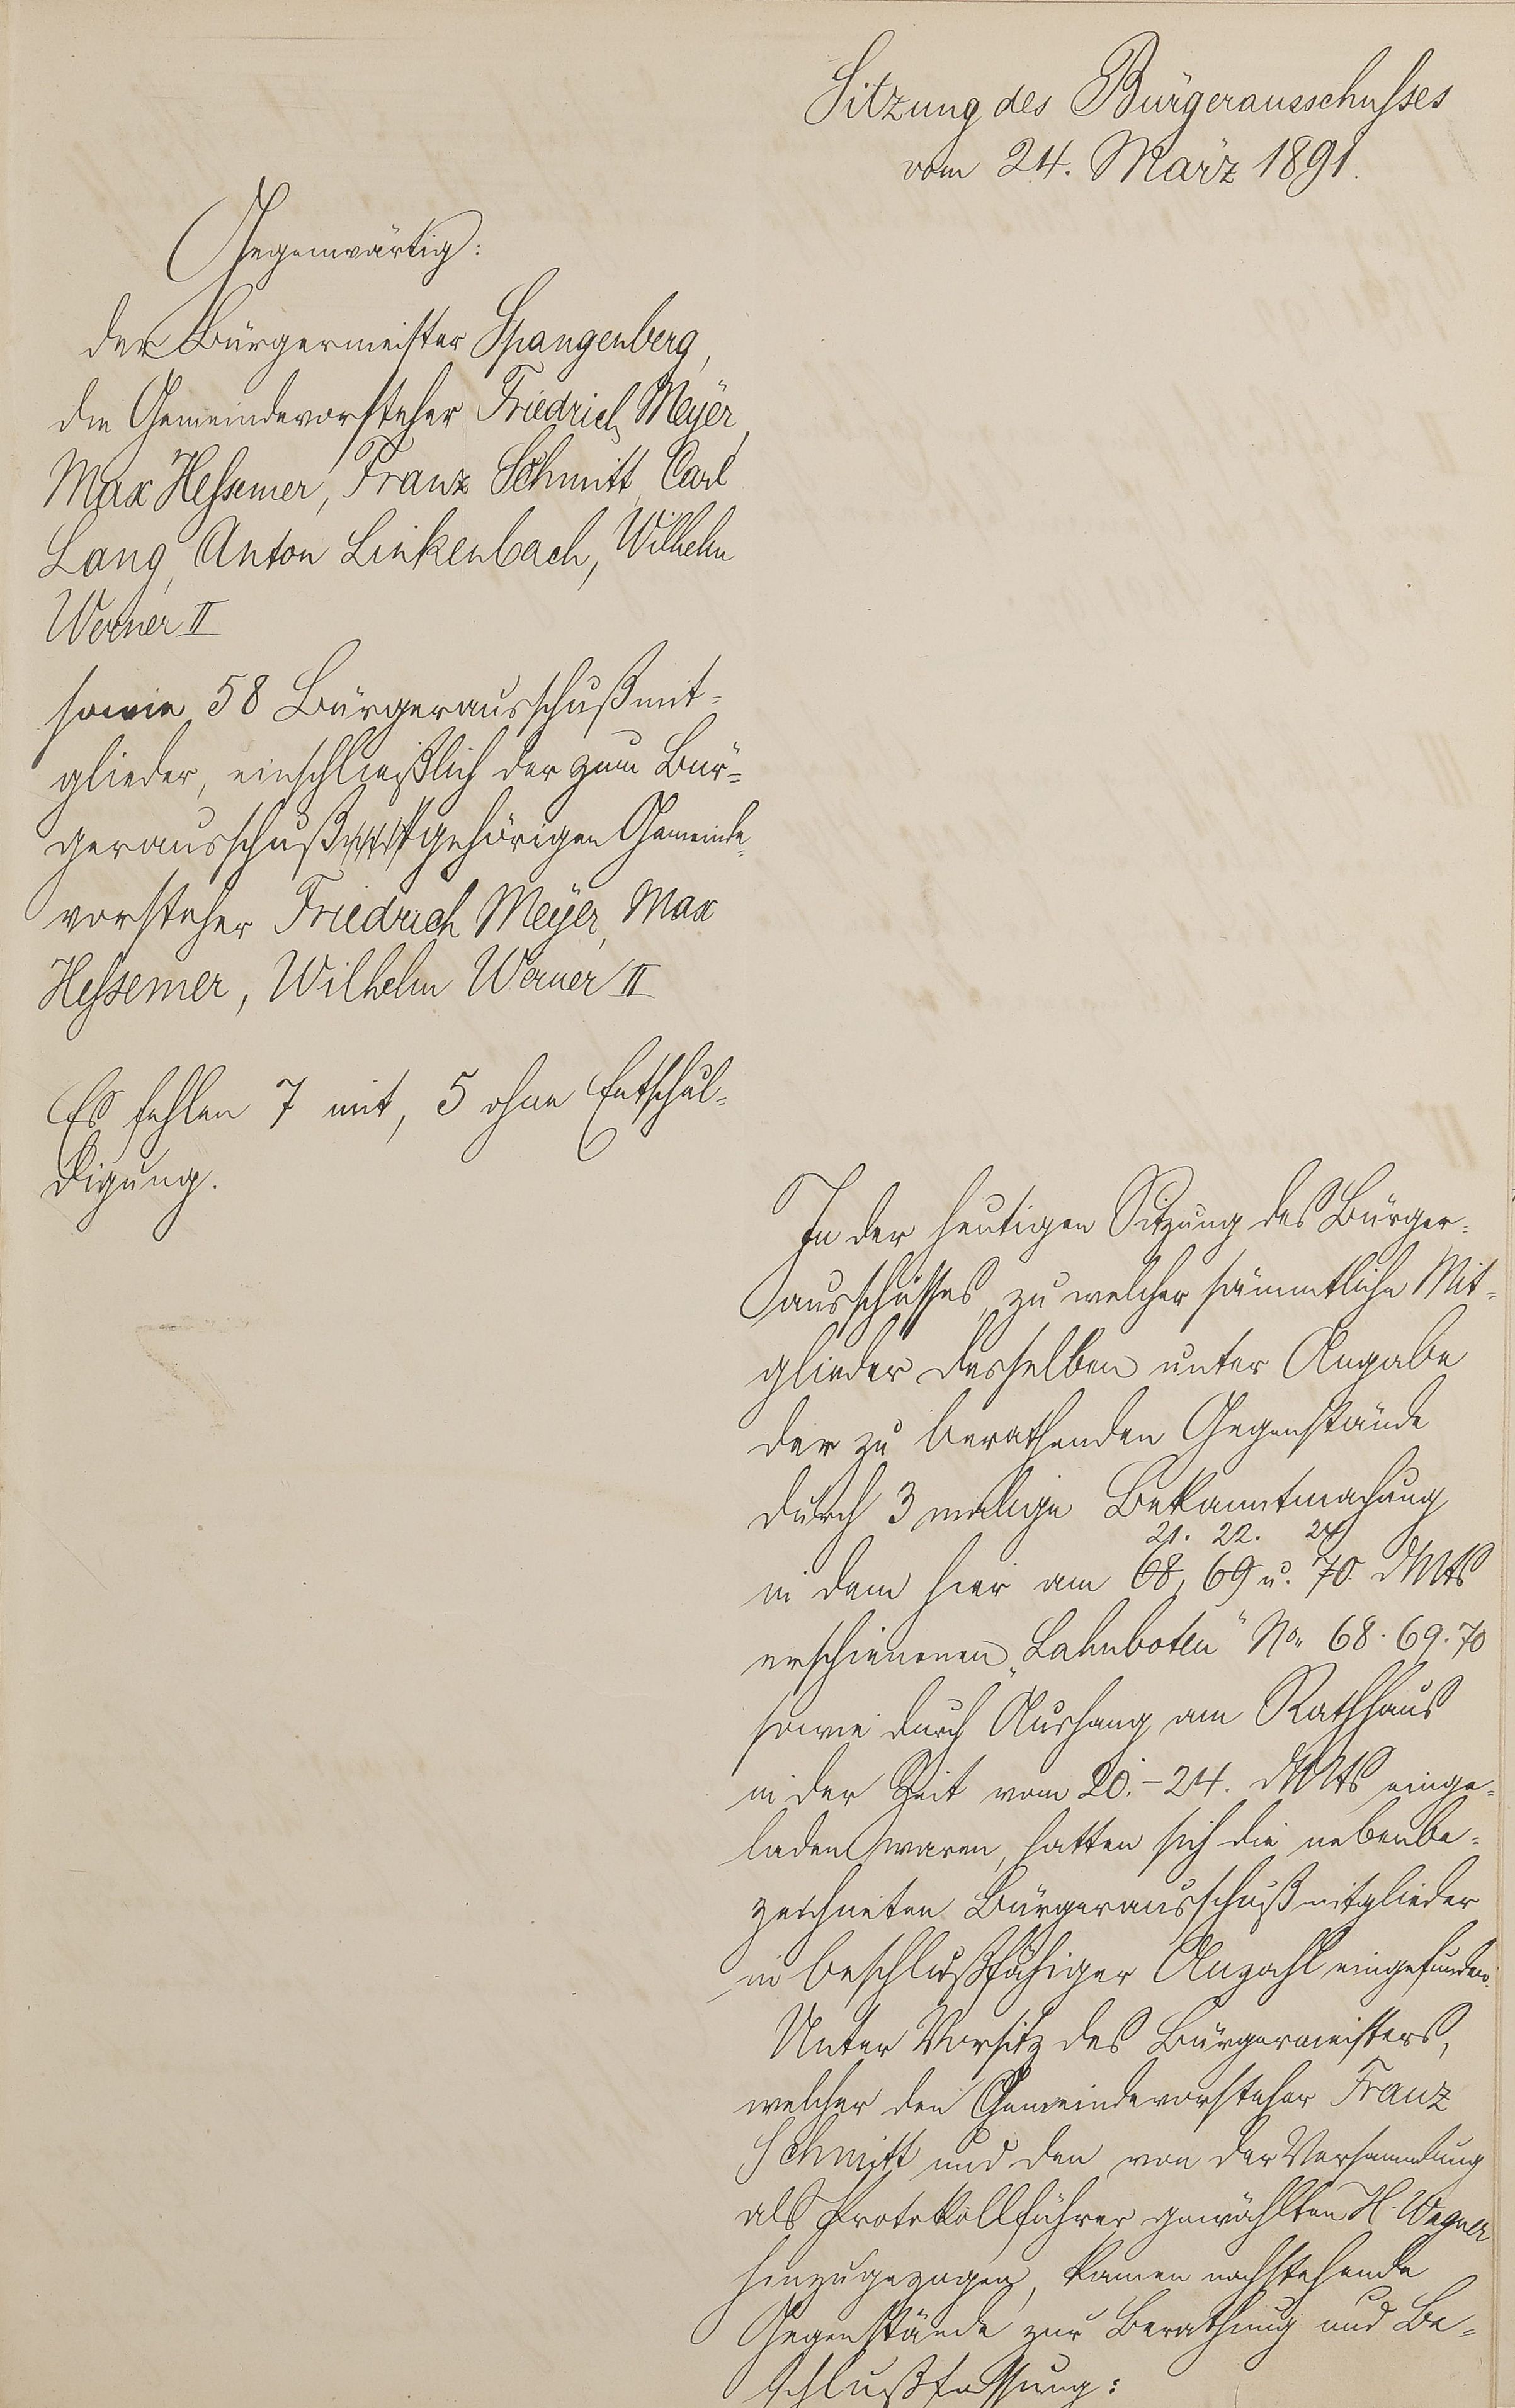 Sitzung des Bürgerausschusses
vom 24. März 1891.
Gegenwärtig:
der Bürgermeister Spangenberg,
die Gemeindevorsteher Friedrich Meyer,
Max Hessemer, Franz Schmitt, Carl
Lang, Anton Linkenbach, Wilhelm
Werner II
sowie 58 Bürgerausschußmit=
glieder, einschließlich der zum Bür=
gerausschuß gehörigen Gemeinde=
vorsteher Friedrich Meyer, Max
Hessemer, Wilhelm Werner II
Es fehlen 7 mit, 5 ohne Entschul=
digung.
In der heutigen Sitzung des Bürger=
ausschusses, zu welcher sämmtliche Mit=
glieder desselben unter Angabe
der zu berathenden Gegenstände
durch 3 malige Bekanntmachung
21. 22. 24
in dem hier am 68, 69 u. 70 dMts
erschienenen „Lahnboten" No. 68. 69. 70
sowie durch Aushang am Rathhaus
in der Zeit vom 20.-24. dMts einge=
laden waren, hatten sich die nebenbe=
zeichneten Bürgerausschußmitglieder
in beschlußfähiger Anzahl eingefunden.
Unter Vorsitz des Bürgermeisters,
welcher den Gemeindevorsteher Franz
Schmitt und den von der Versammlung
als Protokollführer gewählten H. Wagner
hinzugezogen, kamen nachstehende
Gegenstände zur Berathung und Be=
schlußfassung: